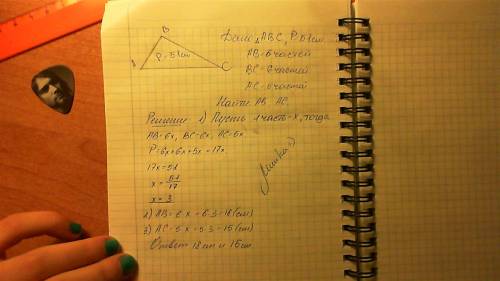 B
Дано: △ABC, P=51см
A P=51см C
AB=6 частей
BC=6 частей
AC=5 частей
Найти AB, AC
Решение 1) Пусть 1 часть - x, тогда
AB=6x, BC=6x, AC=5x
P=6x+6x+5x=17x
17x=51
x=51/17
x=3
2) AB=6·x=6·3=18(см)
3) AC=5·x=5·3=15(см)
Ответ 18см и 15см